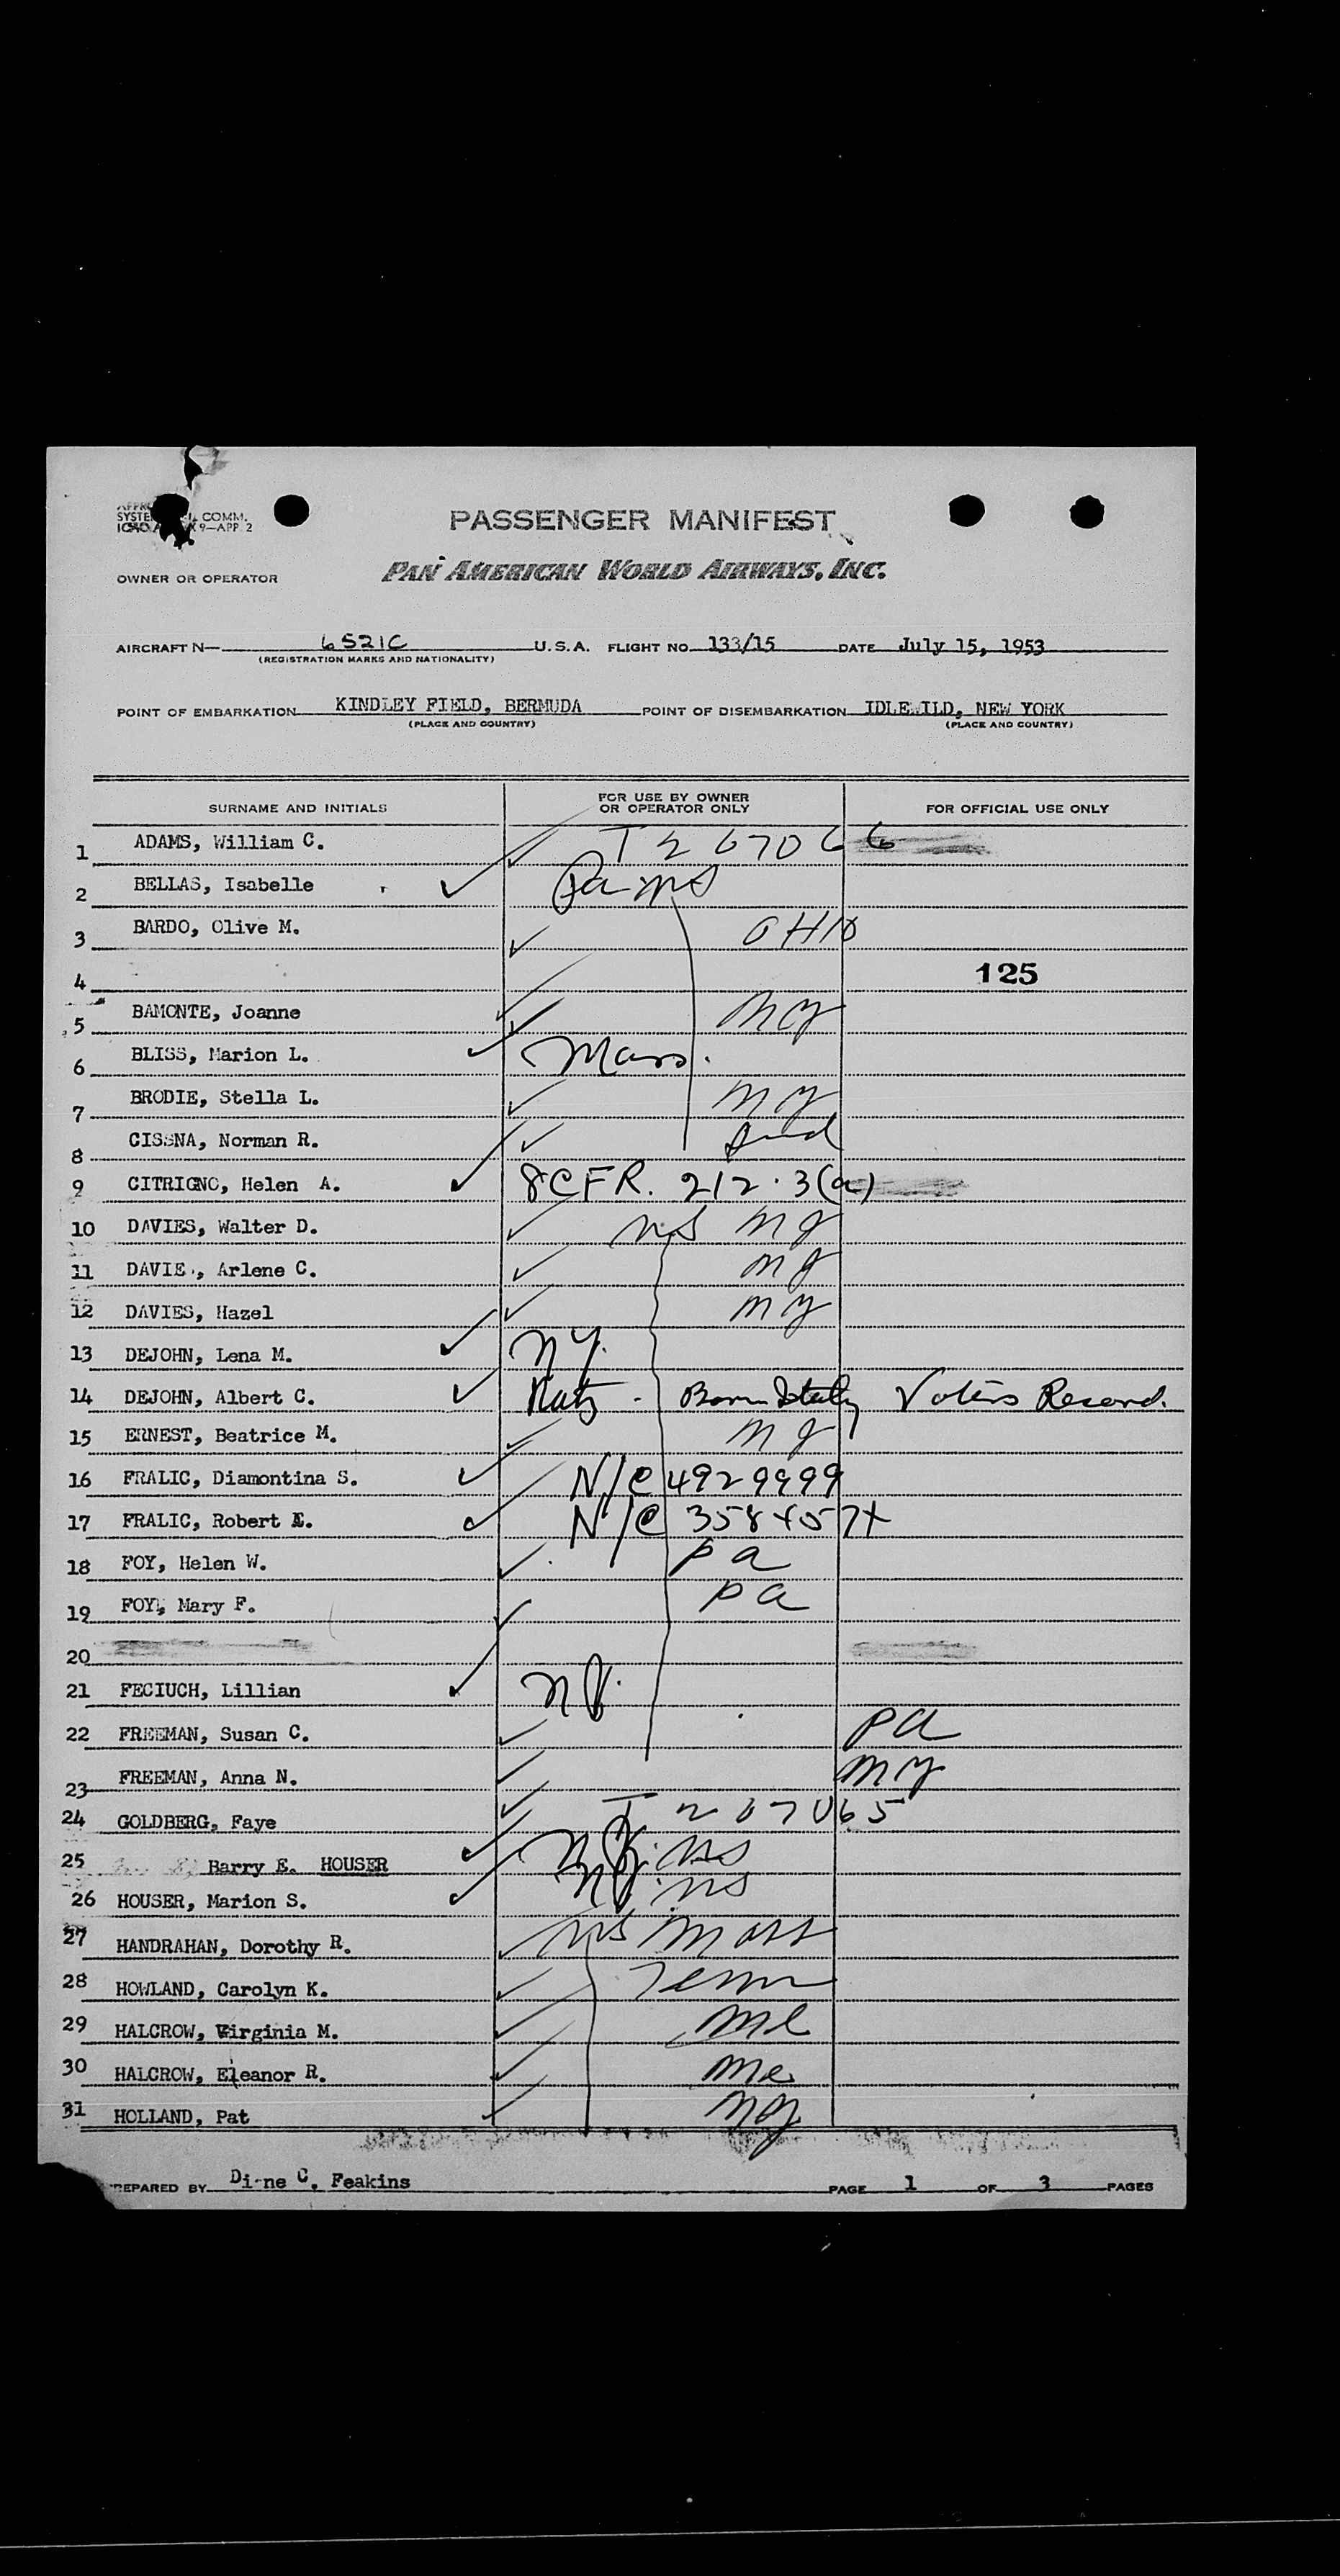 SYSTE COMM.
9—APP 2
PASSENGER MANIFEST
OWNER OR OPERATOR PAN AMERICAN WORLD AIRWAYS, INC.
AIRCRAFT N— 6521C U.S.A. FLIGHT NO. 133/15 DATE July 15, 1953
(REGISTRATION MARKS AND NATIONALITY)
POINT OF EMBARKATION KINDLEY FIELD, BERMUDA POINT OF DISEMBARKATION IDLEWILD, NEW YORK
(PLACE AND COUNTRY) (PLACE AND COUNTRY)
SURNAME AND INITIALS FOR USE BY OWNER OR OPERATOR ONLY FOR OFFICIAL USE ONLY
1 ADAMS, William C. T267066
2 BELLAS, Isabelle Pa
3 BARDO, Olive M. OHIO
4 125
5 BAMONTE, Joanne NY
6 BLISS, Marion L. Mass.
7 BRODIE, Stella L. NY
8 CISSNA, Norman R. Ind
9 CITRIGNO, Helen A. 8CFR. 212.3(a)
10 DAVIES, Walter D. NS NJ
11 DAVIE , Arlene C. NJ
12 DAVIES, Hazel NY
13 DEJOHN, Lena M. NY.
14 DEJOHN, Albert C. Natz - Born Italy Voters Record.
15 ERNEST, Beatrice M. NJ
16 FRALIC, Diamontina S. N/C 4929999
17 FRALIC, Robert E. N/C
18 FOY, Helen W. Pa
19 FOY, Mary F. Pa
20
21 FECIUCH, Lillian NJ.
22 FREEMAN, Susan C. PA
23 FREEMAN, Anna N. NY
24 GOLDBERG, Faye T 267065
25 Barry E. HOUSER NJ. NS
26 HOUSER, Marion S. NJ. NS
27 HANDRAHAN, Dorothy R. NS Mass
28 HOWLAND, Carolyn K. Tenn
29 HALCROW, Virginia M. Me
30 HALCROW, Eleanor R. Me
31 HOLLAND, Pat NY
REPARED BY Di-ne C. Feakins PAGE 1 OF 3 PAGES